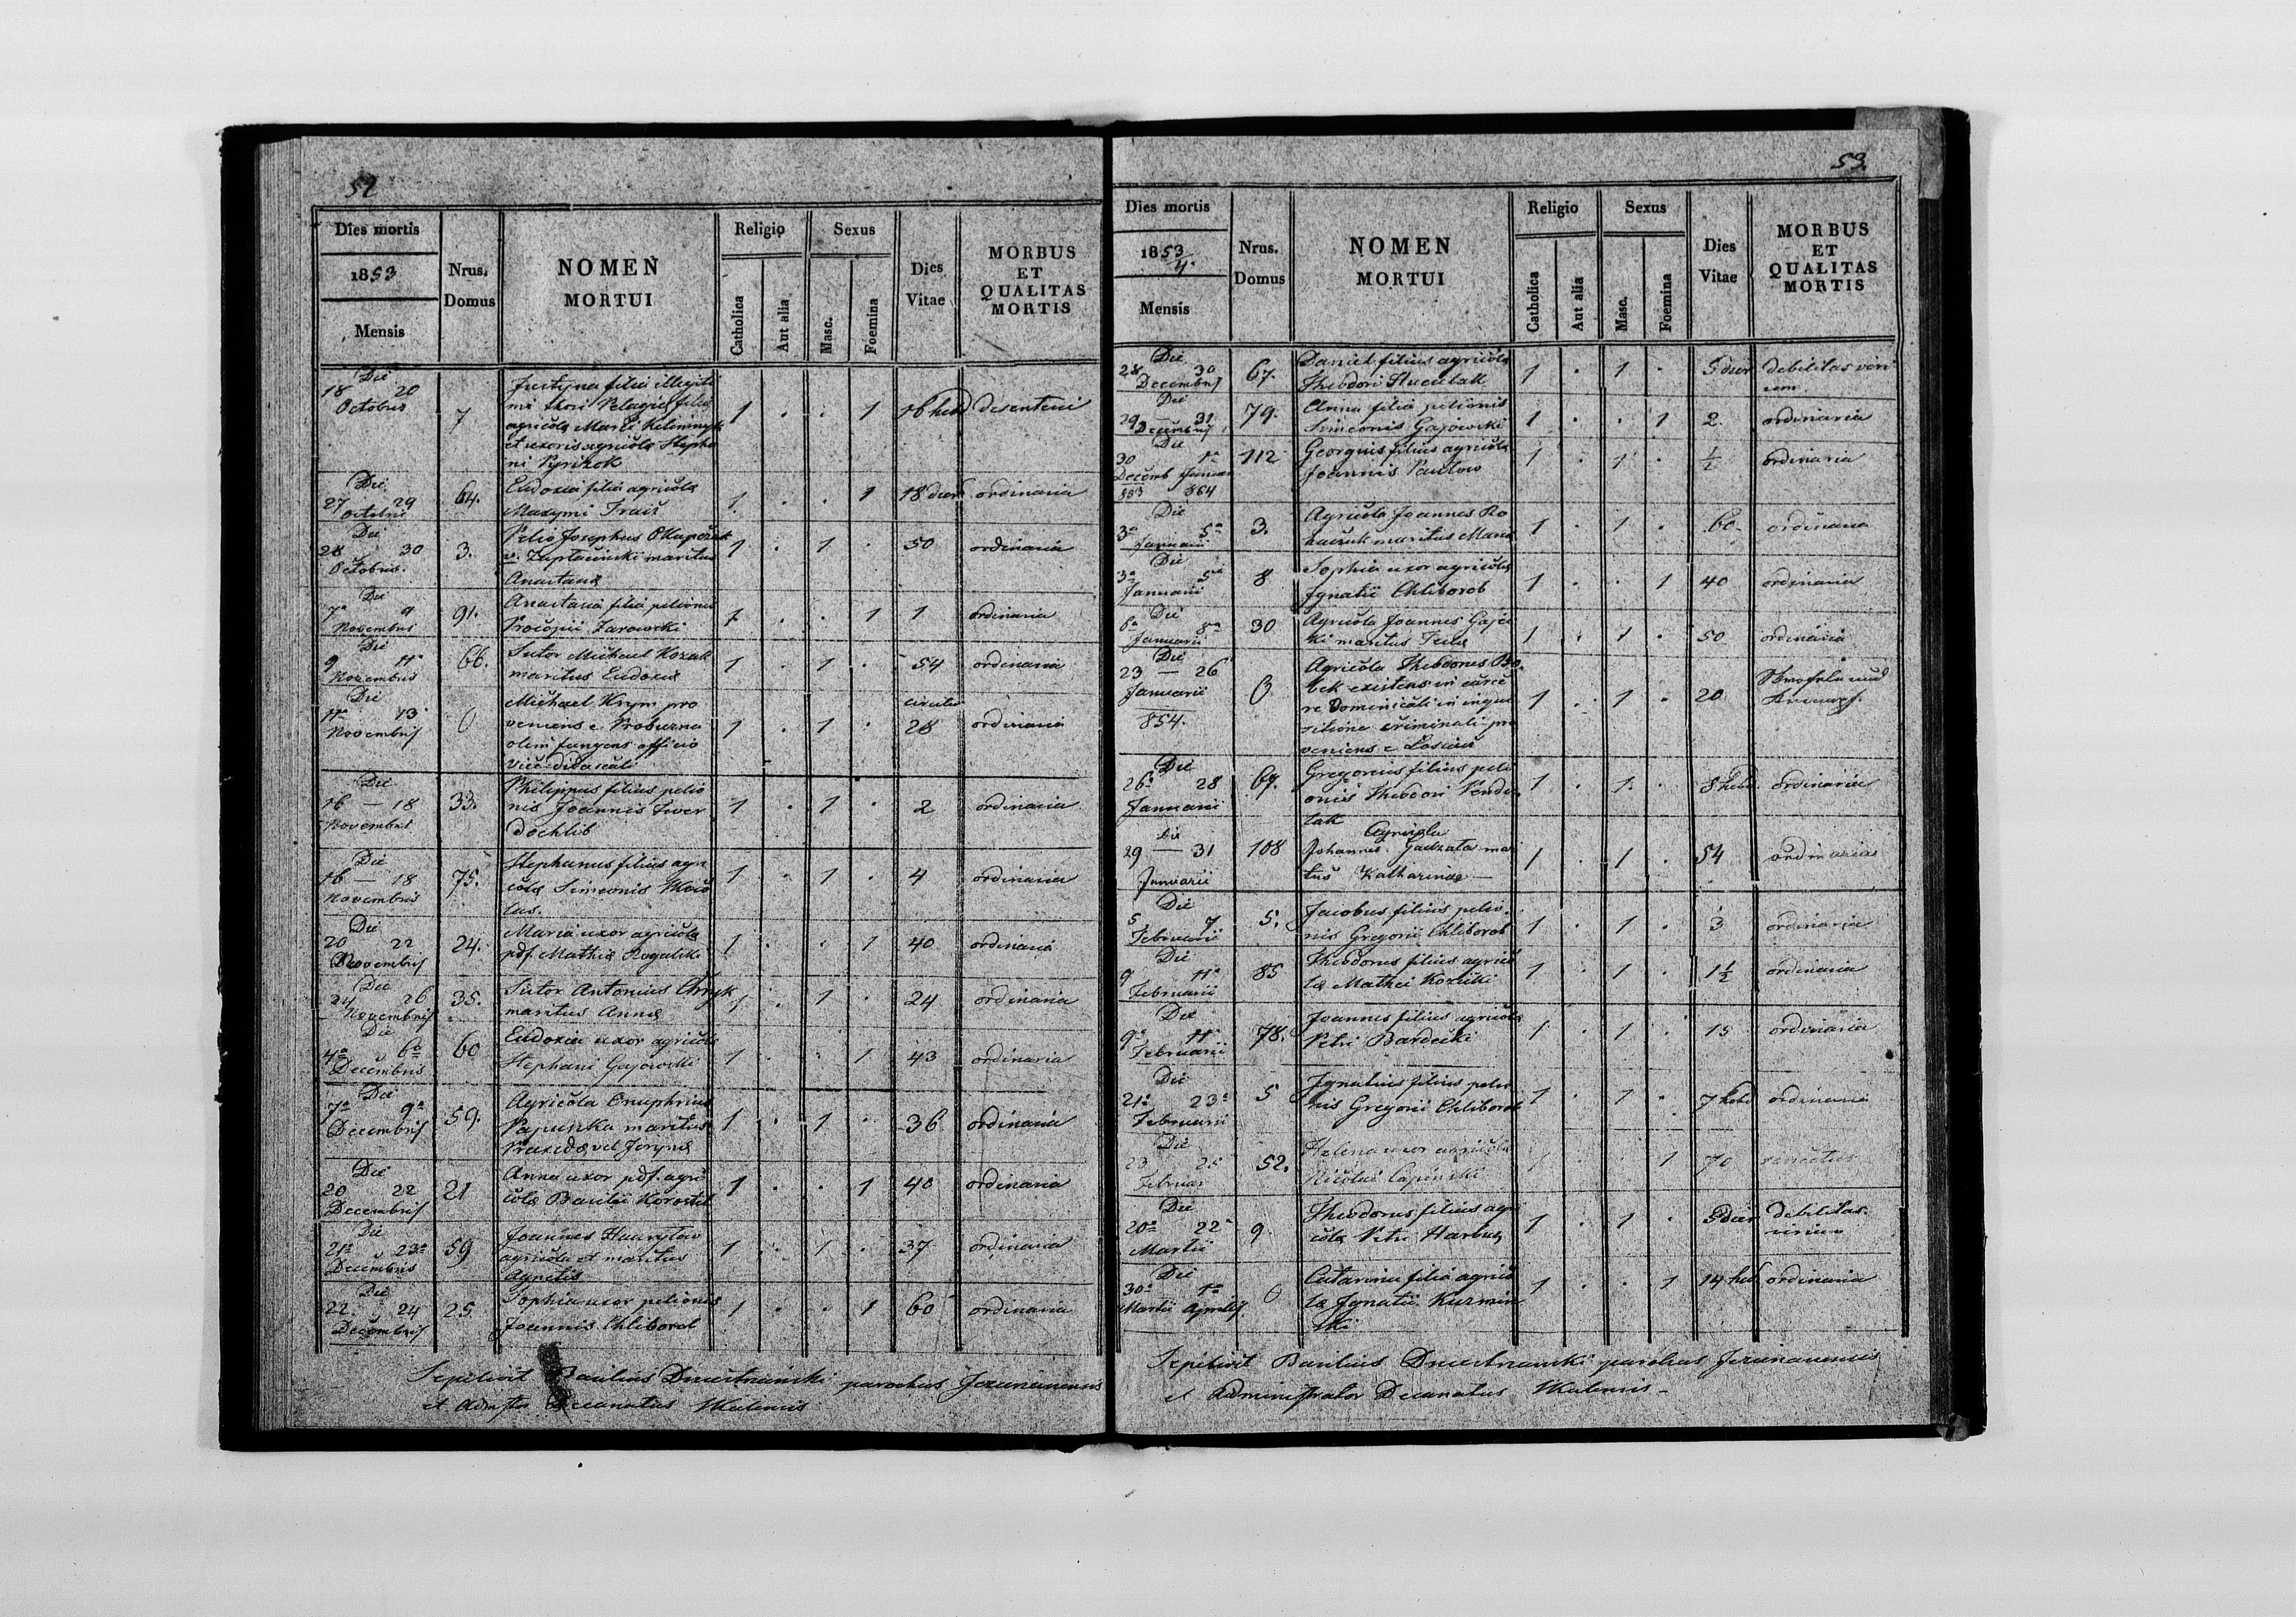 52
Dies mortis
1853
Mensis
Nrus.
Domus
NOMEN
MORTUI
Religio
Catholica
Aut alia
Sexus
Masc.
Foemina
Dies
Vitae
MORBUS
ET
QUALITAS
MORTIS
Die
18 20
Octobris
7
Justyna filia illegiti
mi thori Pelagiæ filiæ
agricolæ
et uxoris agricolæ Stepha
ni
1 . . 1
16 hebd
Die
27 29
Octobris
64.
Eudoxia filia agricolæ
Maxymi
1. . . 1
18 dier ordinaria
Die
28 30
Octobris.
3.
Pelio Josephus
maritus
1 . 1 .
50
ordinaria
Die
7a 9
Novembris
91.
Anastasia filia pelionis
Procopii Zarowski
1 . . 1
1
ordinaria
Die
9 11a
Novembris
66.
Sutor Michael Kozak
maritus Eudoxiæ
1 . 1 .
54
ordinaria
Die
11a 13
Novembris
0
Michael Krym pro
veniens e Probuzna
olim fungens officio
vice didascali
1 . 1 .
circiter
28
ordinaria
Die
16 — 18
Novembris
33.
Philippus filius pelio
nis Joannis Twer
dochlib
1 . 1 .
2
ordinaria
Die
16 — 18
Novembris
75.
Stephanus filius agri
colæ Simeonis
1 . 1 .
4
ordinaria
Die
20 22
Novembris
24.
Maria uxor agricolæ
pdf. Mathiæ Rogalski
1 . . 1
40
ordinaria
Die
24 26
Novembris
35.
Sutor Antonius
maritus Annæ
1 . 1 .
24
ordinaria
Die
4a 6a
Decembris
60
Eudoxia uxor agricolæ
Stephani Gajowski
1 . . 1
43
ordinaria
Die
7a 9a
Decembris
59.
Agricola Onuphrius
Papuszka maritus
Praxedæ vel Jarynæ
1 . 1 .
36
ordinaria
Die
20 22
Decembris
21
Anna uxor pdf. agri
colæ Basilii
1 . . 1
40
ordinaria
Die
21a 23a
Decembris
59
Joannes Hawryluw
agricola et maritus
Agnetis
1 . 1 .
37
ordinaria
Die
22. 24
Decembris
25
Sophia uxor pelionis
Joannis Chliborob
1 . . 1
60
ordinaria
Sepelivit Basilius parochus
et Decanatus
53.
Dies mortis
1853
4.
Mensis
Nrus.
Domus
NOMEN
MORTUI
Religio
Catholica
Aut alia
Sexus
Masc.
Foemina
Dies
Vitae
MORBUS
ET
QUALITAS
MORTIS
Die
28 30
Decembris
67.
Daniel filius agricolæ
Theodori
1 . 1 .
5 dier
debilitas viri
um
Die
29 — 31
Decembris
79.
Anna filia pelionis
Simeonis Gajowski
1 . . 1
2.
ordinaria
Die
30 1a
Decemb Januar
853 854
112
Georgius filius agricolæ
Joannis Pawlow
1 . 1 .
½
ordinaria
Die
3a 5a
Januarii
3.
Agricola Joannes Ro
maritus Mariæ
1 . 1 .
60.
ordinaria
Die
3a 5a
Januarii
8
Sophia uxor agricolæ
Ignatii Chliborob
1 . . 1
40
ordinaria
Die
6a 8a
Januarii
30
Agricola Joannes
maritus
1 . 1 .
50
ordinaria
Die
23 — 26
Januarii
854.
0
Agricola Theodorus
existens in carce
re Dominicali in inqui
sitione criminali pro
veniens e
1 . 1 .
20
Die
26a 28
Januarii
67.
Gregorius filius peli
onis Theodori
1 . 1. .
8 hebd.
ordinaria
Die
29 — 31
Januarii
108
Agricola
Johannes
Katharinæ —
1 . 1 .
54
ordinaria
Die
5 7
Februarii
5.
Jacobus filius pelio-
nis Gregorii Chliborob
1 . 1 .
3
ordinaria
Die
9 11a
Februarii
85
Theodorus filius agrico
læ Mathei Kozicki
1 . 1 .
1½
ordinaria
Die
9a 11a
Februarii
78.
Joannes filius agricolæ
Petri Bardecki
1 . 1 .
15
ordinaria
Die
21a 23a
Februarii
5
Ignatius filius pelio
nis Gregorii Chliborob
1 . 1 .
7 hebd
ordinaria
Die
23 25
Februar
52.
Helena uxor agricolæ
Nicolai
1 . . 1
70
Die
20a 22a
Martii
9
Theodorus filius agri
colæ Petri Harbuz
1 . 1 .
5 dier
debilitas
virium
Die
30a 1a
Martii Aprilis
0
Catarina filia agrico
læ Ignatii Kuzmin
ski
1 . . 1
14 hebd
ordinaria
Sepelivit Basilius parochus
et Administrator Decanatus